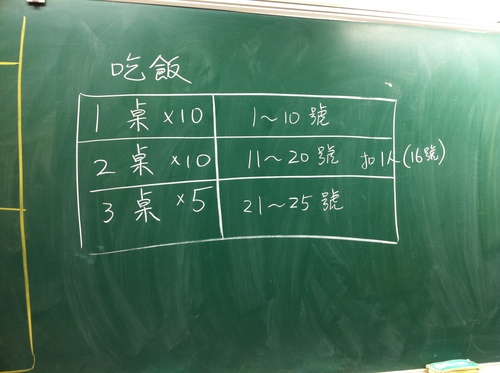 吃飯
1 桌 ×10 1～10 號
2 桌 ×10 11～20 號 扣1人(16號)
3 桌 ×5 21～25 號